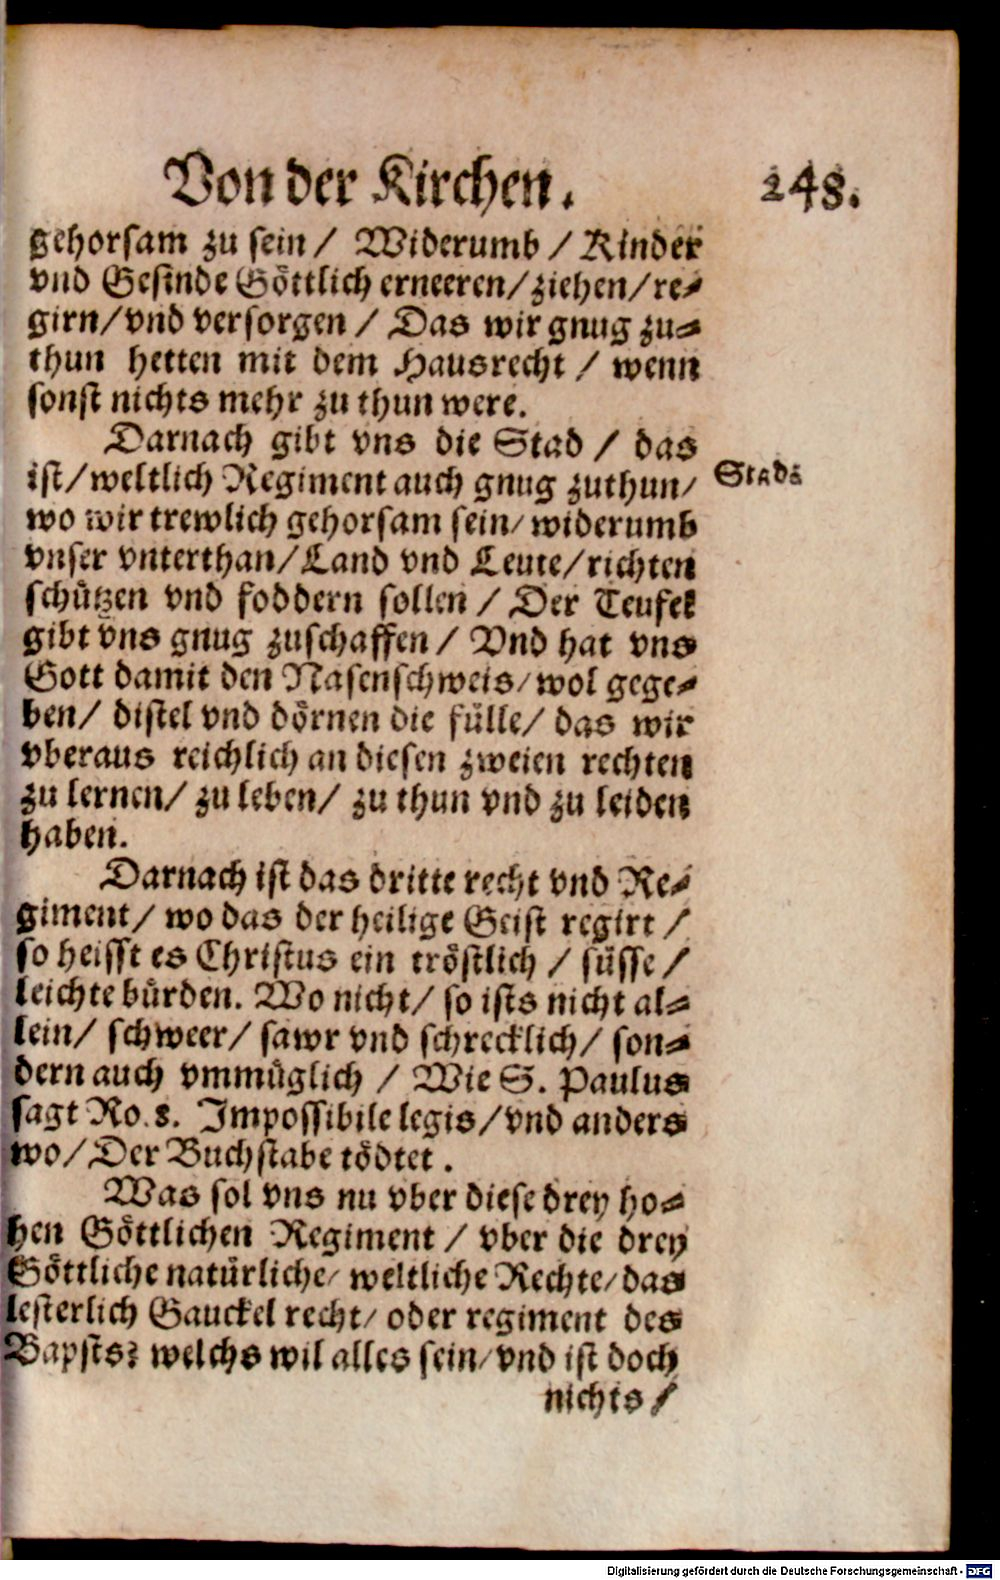 Von der Kirchen. 248.
gehorsam zu sein / Widerumb / Kinder
vnd Gesinde Göttlich erneeren/ziehen/re⸗
girn/vnd versorgen / Das wir gnug zu⸗
thun hetten mit dem Hausrecht / wenn
sonst nichts mehr zu thun were.
Darnach gibt vns die Stad / das
ist/weltlich Regiment auch gnug zuthun/
Stad.
wo wir trewlich gehorsam sein/widerumb
vnser vnterthan/Land vnd Leute/richten
schützen vnd foddern sollen / Der Teufel
gibt vns gnug zuschaffen / Vnd hat vns
Gott damit den Nasenschweis/wol gege⸗
ben/ distel vnd dörnen die fülle/ das wir
vberaus reichlich an diesen zweien rechten
zu lernen/ zu leben/ zu thun vnd zu leiden
haben.
Darnach ist das dritte recht vnd Re⸗
giment/ wo das der heilige Geist regirt /
so heisst es Christus ein tröstlich / süsse /
leichte bürden. Wo nicht/ so ists nicht al⸗
lein/ schweer/ sawr vnd schrecklich/ son⸗
dern auch vmmüglich / Wie S. Paulus
sagt Ro. 8. Impossibile legis/vnd anders
wo/Der Buchstabe tödtet.
Was sol vns nu vber diese drey ho⸗
hen Göttlichen Regiment / vber die drey
Göttliche natürliche/ weltliche Rechte/das
lesterlich Gauckel recht/ oder regiment des
Bapsts? welchs wil alles sein/vnd ist doch
nichts /
Digitalisierung gefördert durch die Deutsche Forschungsgemeinschaft - DFG